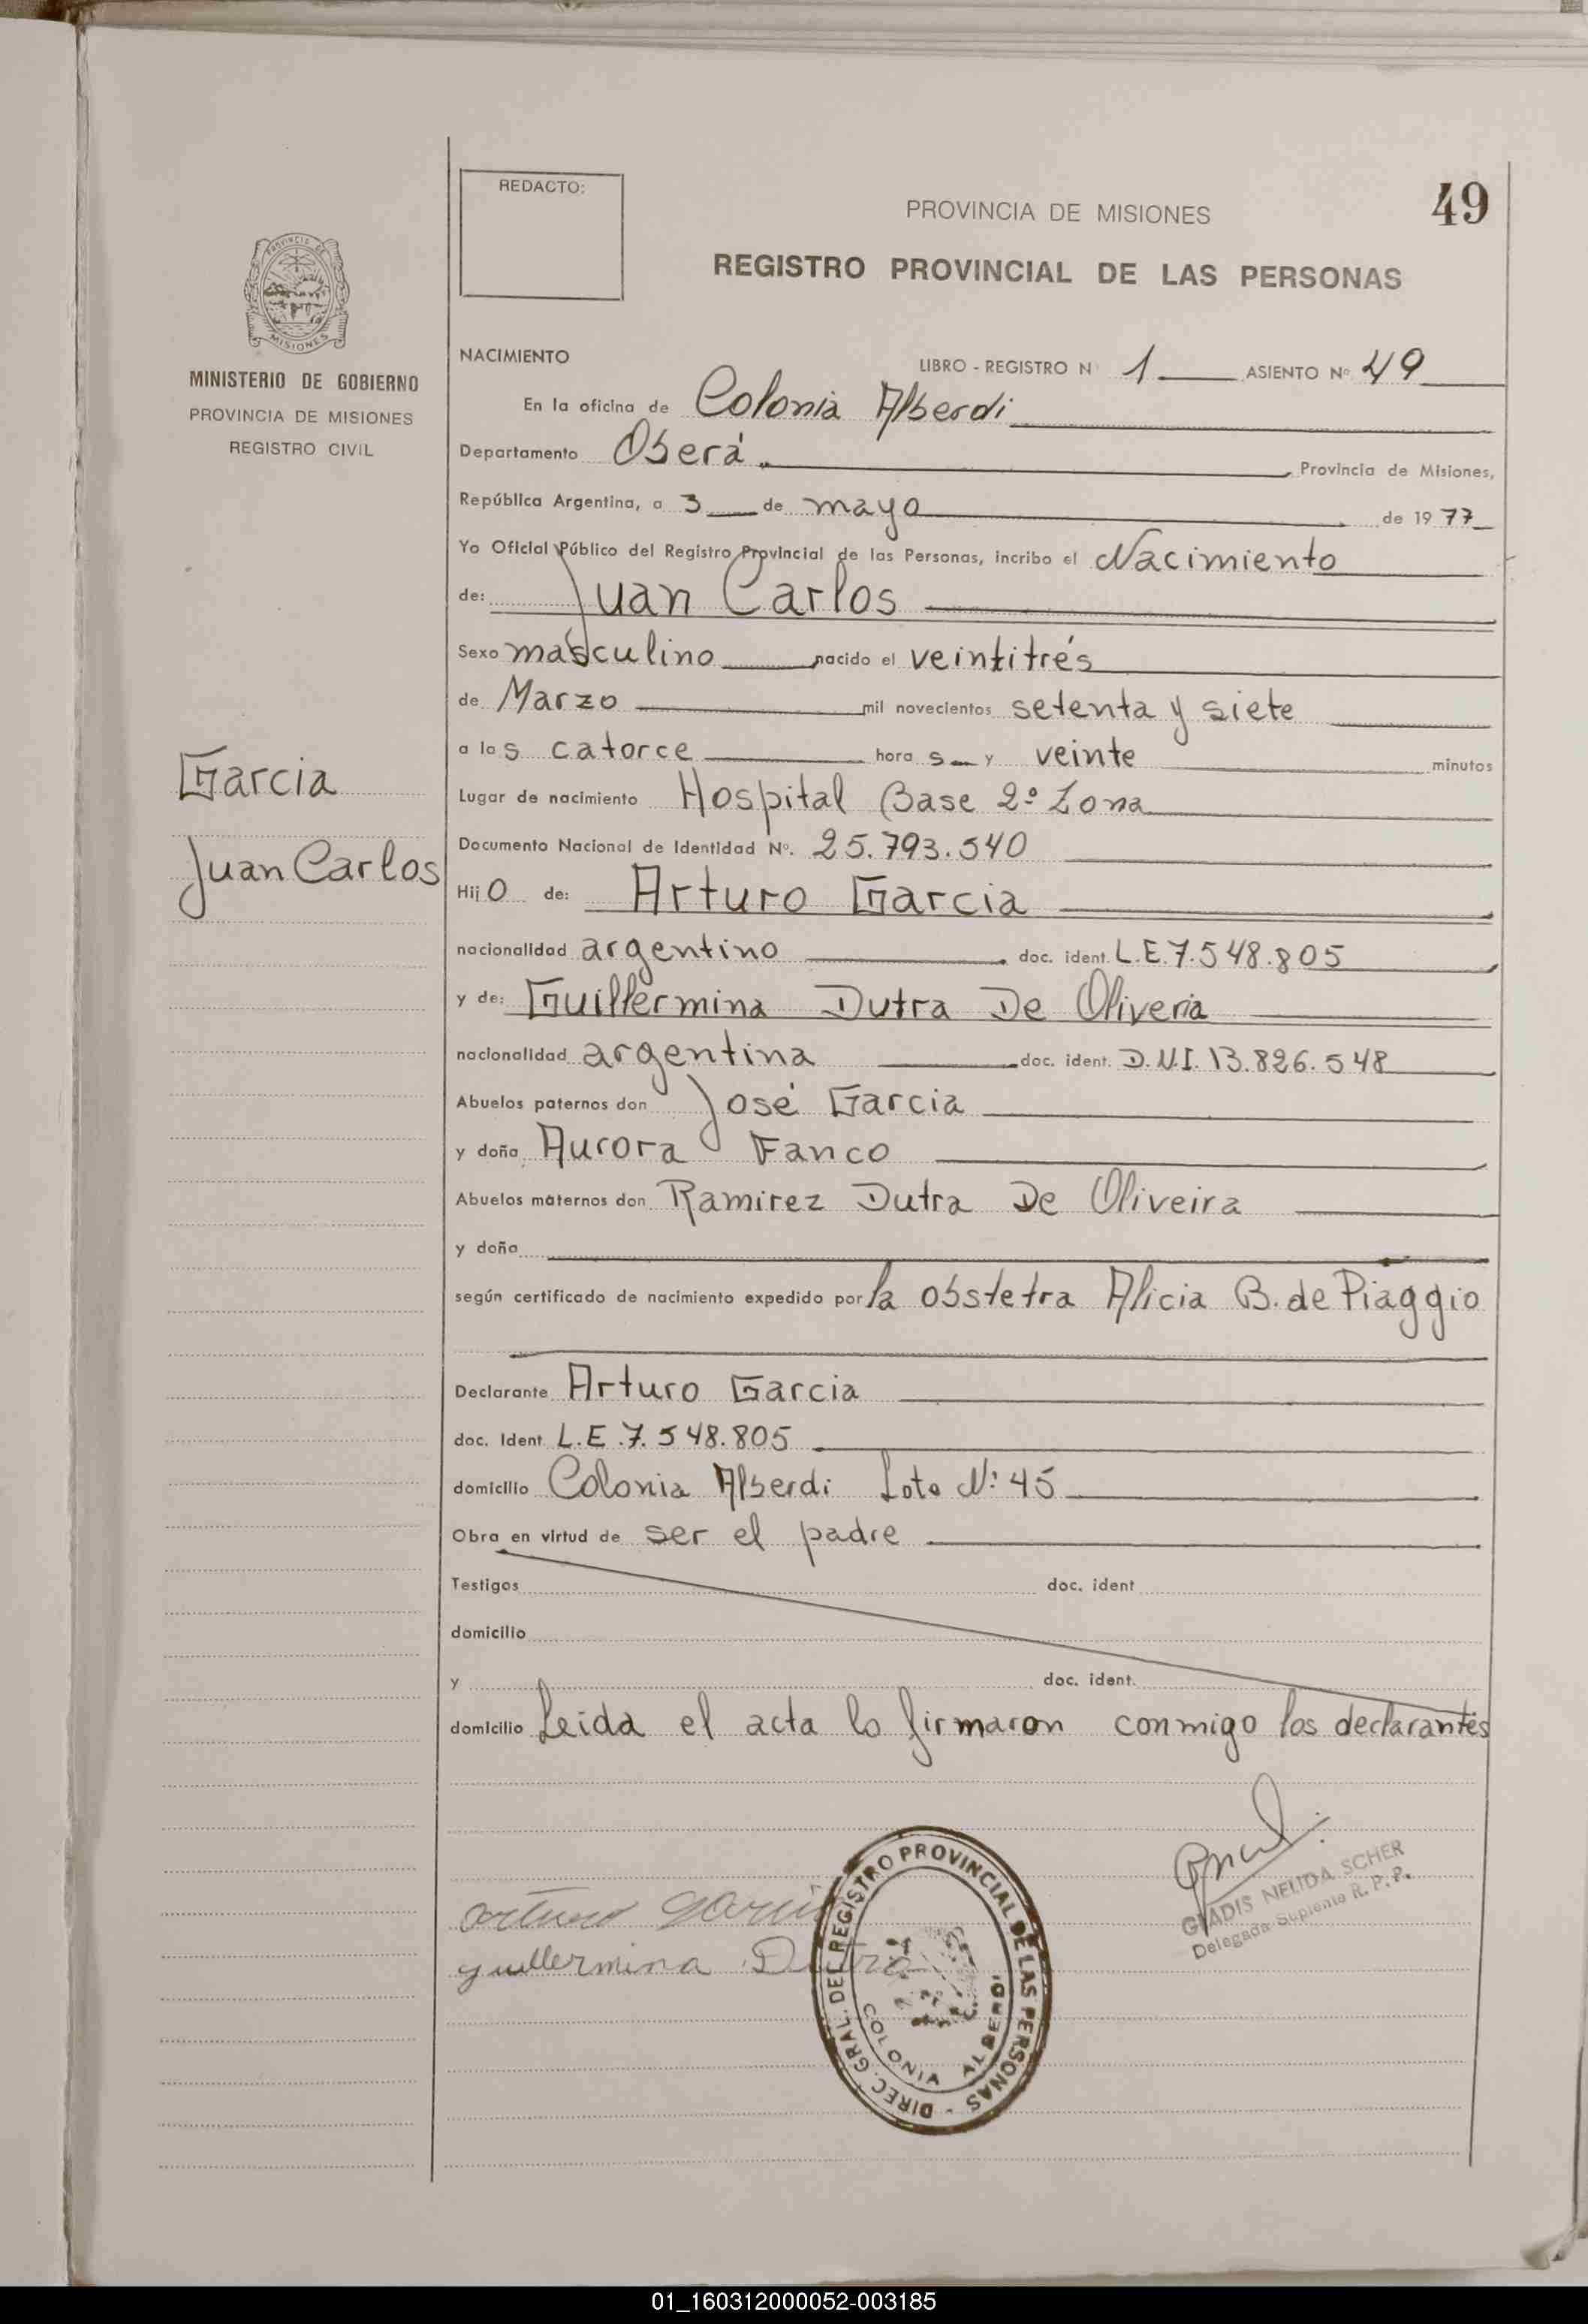 REDACTO:
PROVINCIA DE MISIONES
49
REGISTRO PROVINCIAL DE LAS PERSONAS
PROVINCIA DE MISIONES
MINISTERIO DE GOBIERNO
PROVINCIA DE MISIONES
REGISTRO CIVIL
Garcia
Juan Carlos
NACIMIENTO LIBRO - REGISTRO N 1 ASIENTO Nº 49
En la oficina de Colonia Alberdi
Departamento Oberá Provincia de Misiones,
República Argentina, a 3 de mayo de 1977
Yo Oficial Público del Registro Provincial de las Personas, incribo el Nacimiento
de: Juan Carlos
Sexo masculino nacido el veintitrés
de Marzo mil novecientos setenta y siete
a las catorce horas y veinte minutos
Lugar de nacimiento Hospital Base 2º Zona
Documento Nacional de Identidad Nº. 25.793.540
Hijo de: Arturo Garcia
nacionalidad argentino doc. ident. L.E.7.548.805
y de: Guillermina Dutra De Oliveria
nacionalidad argentina doc. ident. D.N.I. 13.826.548
Abuelos paternos don José Garcia
y doña Aurora Fanco
Abuelos maternos don Ramirez Dutra De Oliveira
y doña
según certificado de nacimiento expedido por la obstetra Alicia B. de Piaggio
Declarante Arturo Garcia
doc. Ident L.E.7.548.805
domicilio Colonia Alberdi Lote Nº 45
Obra en virtud de ser el padre
Testigos doc. ident
domicilio
y doc. ident.
domicilio Leida el acta lo firmaron conmigo los declarantes
arturo garcia
guillermina Dutra
DIREC. GRAL. DEL REGISTRO PROVINCIAL DE LAS PERSONAS -
COLONIA ALBERDI
GLADIS NELIDA SCHER
Delegada Suplente R. P. P.
01_160312000052-003185